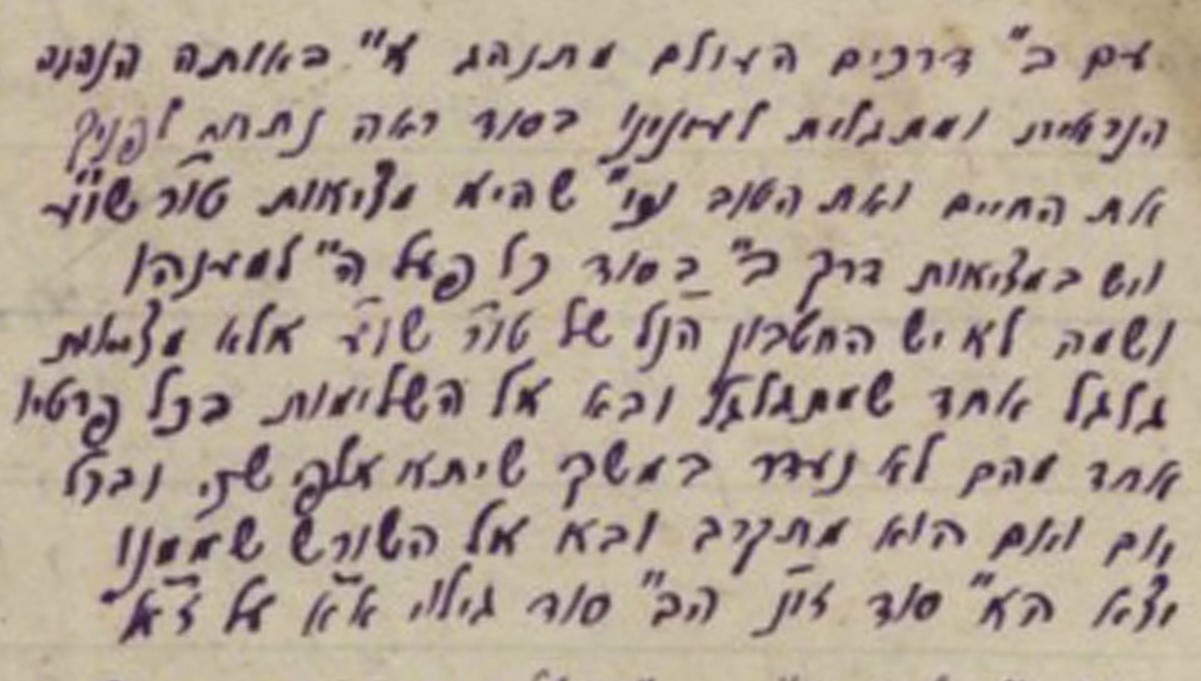 עם ב" דרכים העולם מתנהג א" באותה הנהגה
הנראית ומתגלית לעינינו בסוד ראה נתתי לפניך
את החיים ואת הטוב וגו" שהיא מציאות טו"ר שו"ע
ויש במציאות דרך ב" בסוד כל פעל ה" למענהו
ושמה לא יש החשבון הנ"ל של טו"ר שו"ע אלא מציאות
גלגל אחד שמתגלגל ובא אל השלימות בכל פרטיו
אחד מהם לא נעדר במשך שיתא אלפי שני ובכל
יום ויום הוא מתקרב ובא אל השורש שממנו
יצא הא" סוד זו"ן הב" סוד גילוי א"א על ז"א